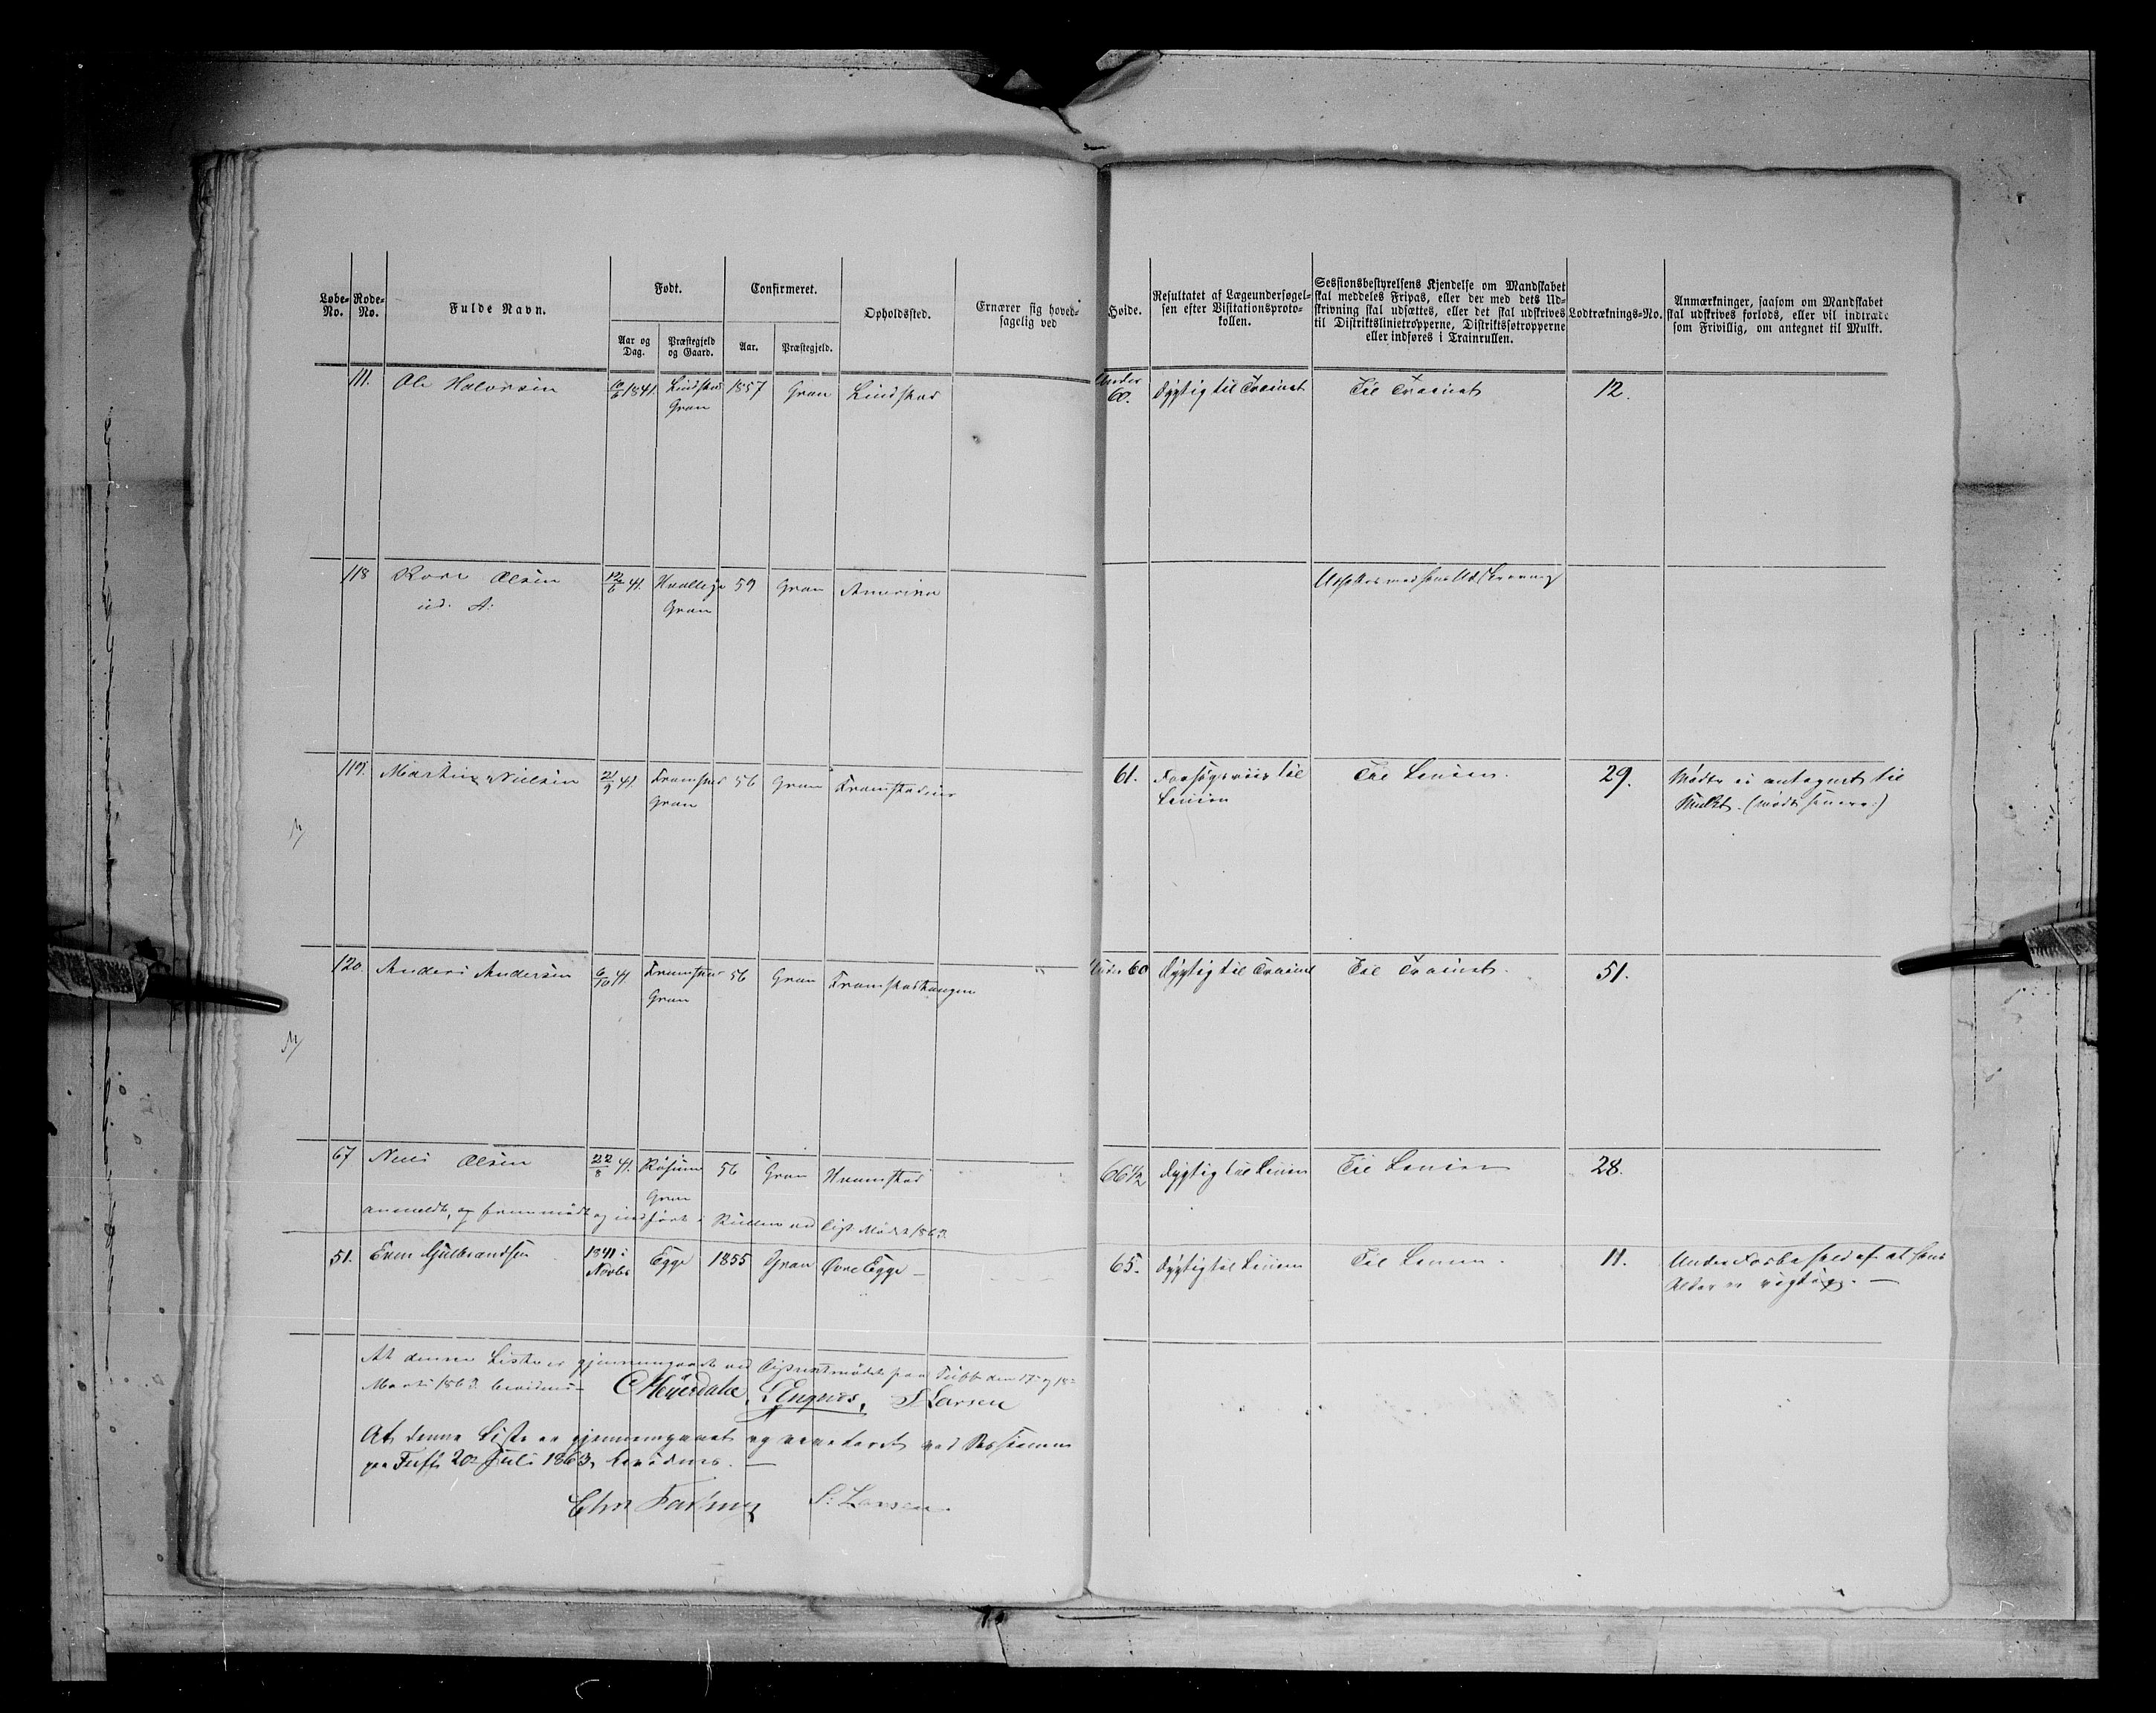 Løbe-No.
Rode-No.
Fulde Navn.
Født.
Aar og Dag.
Præstegjeld og Gaard.
Confirmeret.
Aar.
Præstegjeld.
Opholdssted.
Ernærer sig hoved-
sagelig ved
Høide.
Resultatet af Lægeundersøgel-
sen efter Visitationsproto-
kollen.
Sessionsbestyrelsens Kjendelse om Mandskabet
skal meddeles Fripas, eller der med dets Ud-
skrivning skal udsættes, eller det skal udskrives
til Distriktslinietropperne, Distriktsøtropperne
eller indføres i Trainrullen.
Lodtræknings-No.
Anmærkninger, saasom om Mandskabet
skal udskrives forlods, eller vil indtræde
som Frivillig, om antegnet til Mulkt.
111. Ole Halvorsen 1841. Lindstad 1857 Gran Lindstad Under 60. Dygtig til Trainet Til Trainet 12.
Gran
118 Olsen 12/6 41. 59 Gran Amerika Udsættes med hans Udskrivning
ud. A: Gran
119. Martin Nielsen 21/9 41. Framstad 56 Gran 61. til Til Linien. 29. Mødte ei antegnet til
Gran Linien Mulkt. (mødt senere.)
120. Anders Andersen 9/10 41. Framstad 56 Gran Under 60 Dygtig til Trainet Til Trainet. 51.
Gran
67 Nils Olsen 22/8 41. Røsum 56 Gran Framstad 66 1/2 Dygtig til Linien Til Linien 28.
Gran
anmeldt, og fremmødt og indført i Rullen ved Dist. Mødet 1863.
51. Even Gulbrandsen 1841 i Egge 1855 Gran Øvre Egge — 65. Dygtig til Linien Til Linien. 11. Under Forbehold af at hans
Novbr Alder er rigtig. —
At denne Liste er gjennemgaaet ved Distriktmødet paa Tufte den 17 og 18
Marts 1863 bevidnes— C Meyerdahl. L Engnæs, S Larsen
At denne Liste er gjennemgaaet og ved Sessionen
paa Tufte 20de Juli 1863, bevidnes. —
Chr S: Larsen.